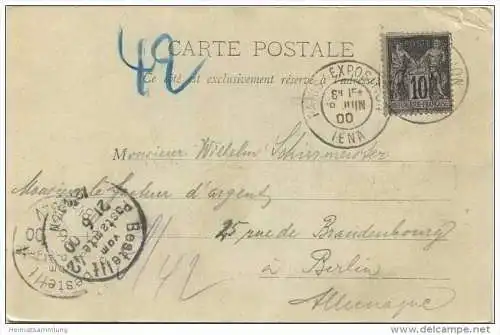 42
CARTE POSTALE
Ce côté est exclusivement réservé à l'adresse
PARIS EXPOSITION
JUIN
00
IENA
10
Monsieur Wilhelm Schirrmeister
d'argent
25 rue de Brandenbourg
à Berlin
Allemagne
42
Bestellt
vom
Postamte 42
00
Heimatsammlung.de
www.delcampe.net